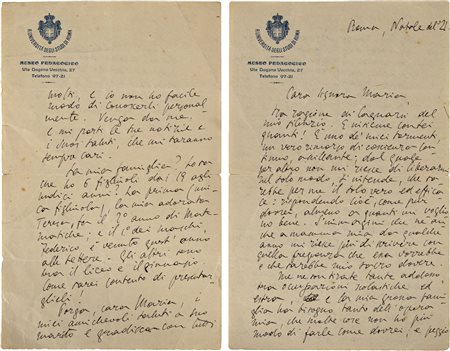 R. UNIVERSITÀ DEGLI STUDI DI ROMA
MUSEO PEDAGOGICO
Via Dogana Vecchia, 27
Telefono 07-21
molti, e io non ho facile
modo di conoscerli personal
mente. Venga da me,
e mi porti le sue notizie e
i suoi saluti, che mi saranno
sempre cari.
La mia famiglia? Lo sa
che ho 6 figliuoli dai 19 agli
undici anni? La prima (uni-
ca figliuola), la mia adorata
Teresa, fa il 2° anno di Mate-
matiche; e il 1° dei maschi,
Federico, è venuto quest'anno
alle Lettere. Gli altri son
tra il liceo e il ginnasio.
Come sarei contento di presentar
glieli!
Porga, cara Maria, i
miei amichevoli saluti a suo
marito e gradisca con tutti
R. UNIVERSITÀ DEGLI STUDI DI ROMA
MUSEO PEDAGOGICO
Via Dogana Vecchia, 27
Telefono 07-21
Roma, Natale del '21
Cara Signora Maria,
Ha ragione di lagnarsi del
mio silenzio. E insieme con lei
quanti! È uno de' miei tormenti,
un vero rimorso di coscienza con
tinuo, assillante; dal quale
peraltro non mi riesce di liberarmi
nel solo modo, s'intende, che sa
rebbe per me il solo vero ed effica
ce: rispondendo cioè, come pur
dovrei, almeno a quanti mi voglion
bene. S'immagini che an
che a mamma mia da qualche
anno mi riesce più di scrivere con
quella frequenza che essa vorrebbe
e che sarebbe mio sacro dovere.
Me ne son tirate tante addosso
tra occupazioni scolastiche ed
extra, e la mia grossa fami
glia ha bisogno tanto dell'opera
mia, che molte cose non ho più
modo di farle come dovrei, e peggio